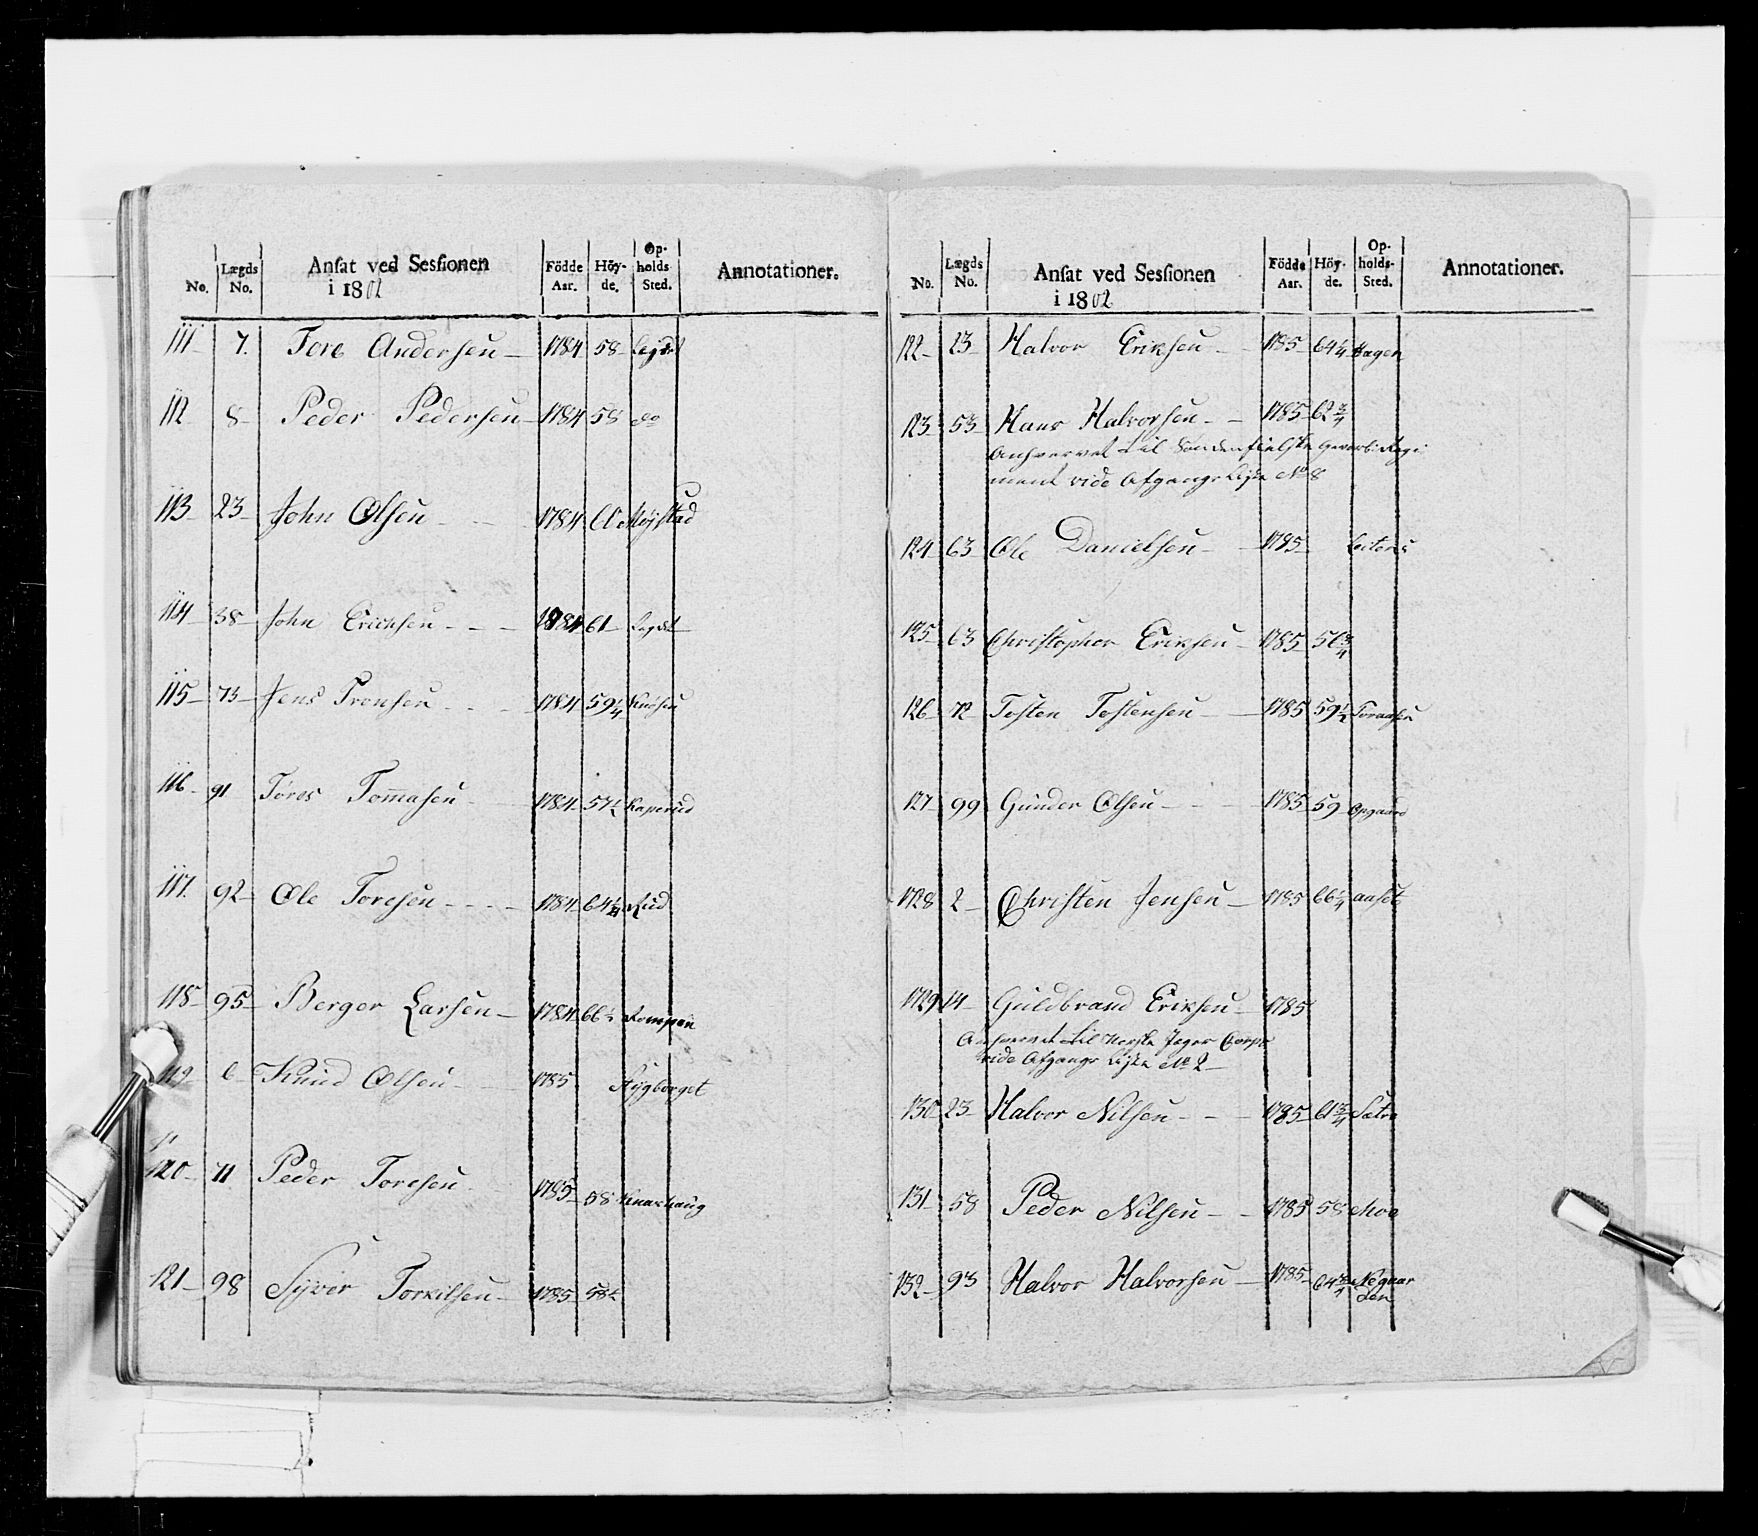 No. Lægds No. Ansat ved Sessionen i 1802 Födde Aar. Höyde. Opholds-Sted. Annotationer.
111 7. Tore Andersen 1784 58 Legdet
112 8 Peder Pedersen 1784 58 do
113 23 John Olsen 1784 Møystad
114 38 John Erichsen 1784 61 Legdet
115 73 Jens Tronsen 1784 59 1/4
116 91 Tores Tommasen 1784 57 1/2 Kaperud
117. 92 Ole Toresen 1784 64 1/4 Rud
118 95 Berger Larsen 1784 66 1/2
119 6 Knud Olsen 1785 Stygberget
120 71 Peder Toresen 1785 58
121 98 Syver Torkilsen 1785 58 1/2
No. Lægds No. Ansat ved Sessionen i 1802 Födde Aar. Höyde. Opholds-Sted. Annotationer.
122 23 Halvor Eriksen 1785 64 1/4 Hagen
123 53 Hans Halvorsen 1785 62 3/4
Anhvervet til Søndenfielske Gevorb: Regi
ment vide Afgangs Liste No 8
124 63 Ole Danielsen 1785
125 63 Christopher Eriksen 1785 56 3/4
126 72 Tosten Tostensen 1785 59 1/2
127 99 Gunder Olsen 1785 59 Opgaard
128 2 Christen Jensen 1785 66 1/4
129 14 Guldbrand Eriksen 1785
Anhvervet til Norske Jæger Corps
vide Afgangs Liste No 2
130 23 Halvor Nilsen 1785 61 3/4 Sætre
131 58 Peder Nilsen 1785 58 Moe
132 93 Halvor Halvorsen 1785 64 3/4 Nøgaar
den